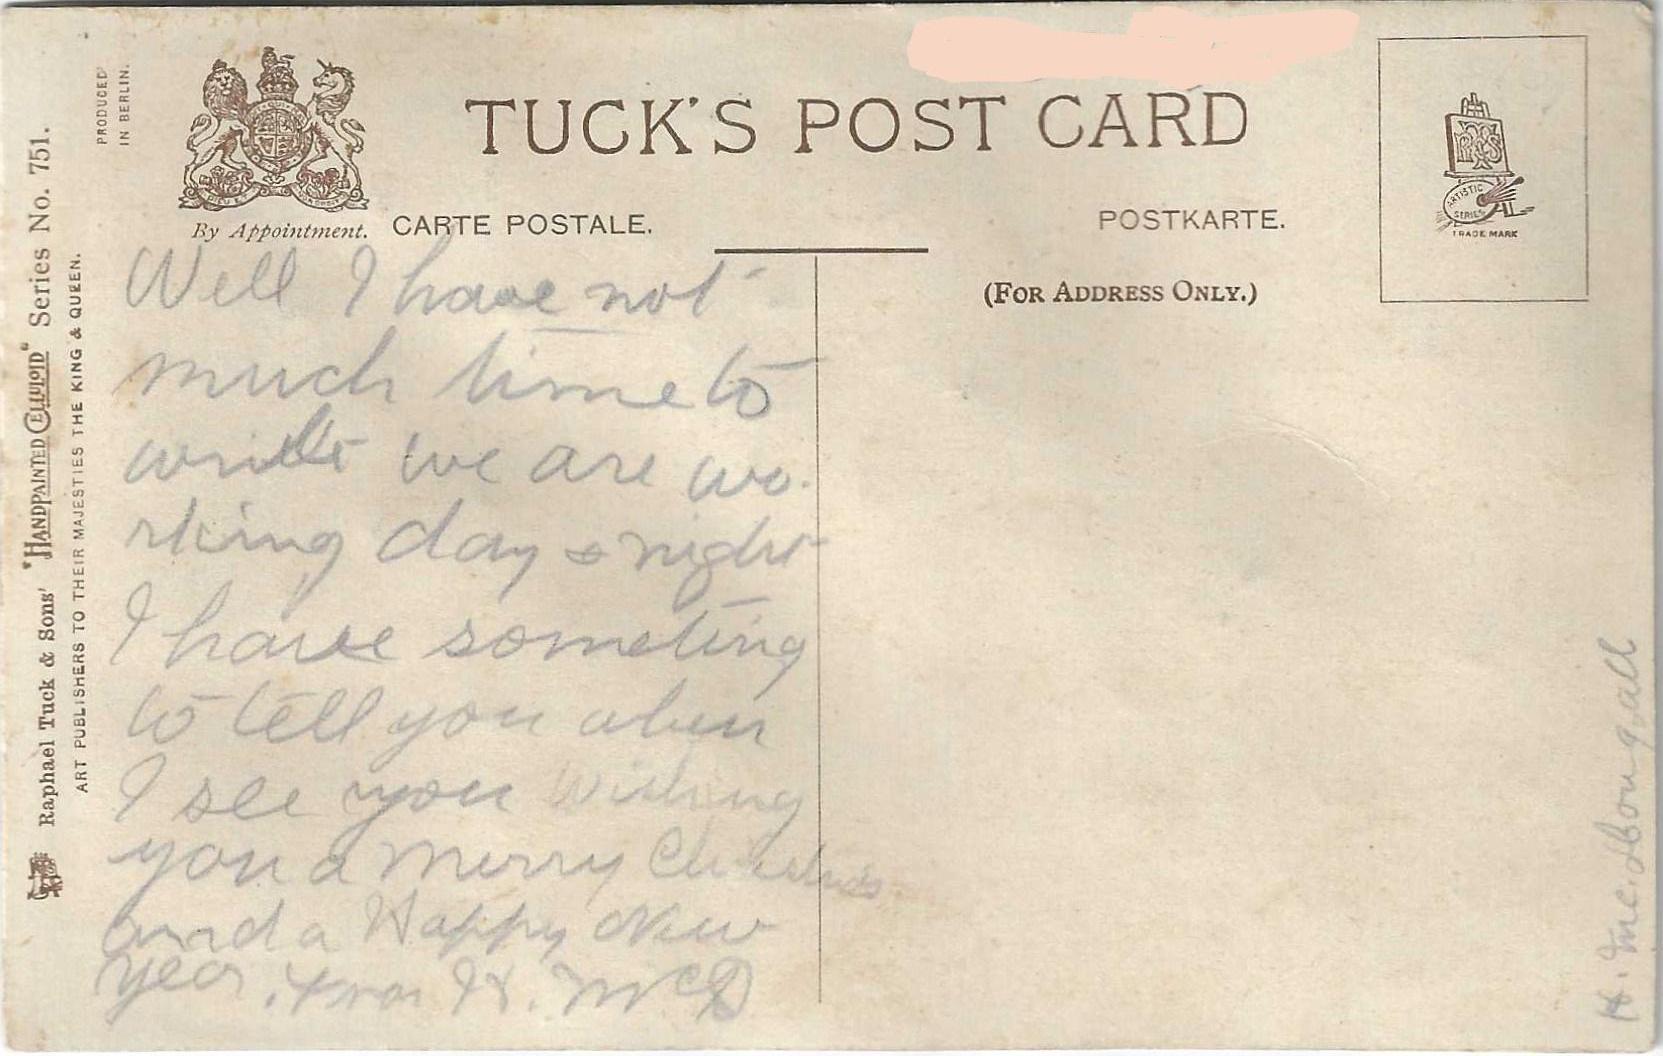 TUCK'S POST CARD
By Appointment.
CARTE POSTALE.
POSTKARTE.
(FOR ADDRESS ONLY.)
PRODUCED
IN BERLIN.
Raphael Tuck & Sons' "HANDPAINTED CELLULOID" Series No. 751.
ART PUBLISHERS TO THEIR MAJESTIES THE KING & QUEEN.
ARTISTIC
SERIES
TRADE MARK
Well I have not
much time to
write we are wo.
rking day & night
I have someting
to tell you when
I see you Wishing
you a Merry Christmas
and a Happy New
year. from H. McD
H. McDougall